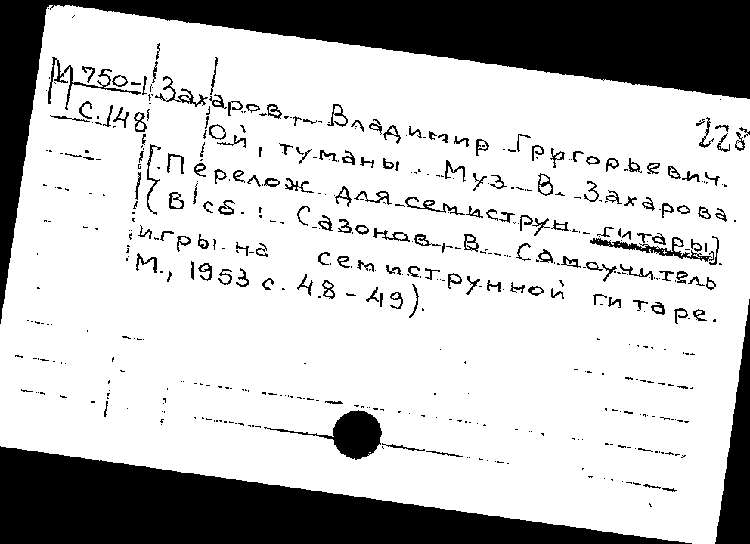 М 750-1 Захаров, Владимир Григорьевич. 228
С.148 Ой, туманы. Муз. В. Захарова.
[Перелож. для семиструн. гитары].
(В сб.: Сазонов, В. Самоучитель
игры на семиструнной гитаре.
М., 1953 с. 48-49).